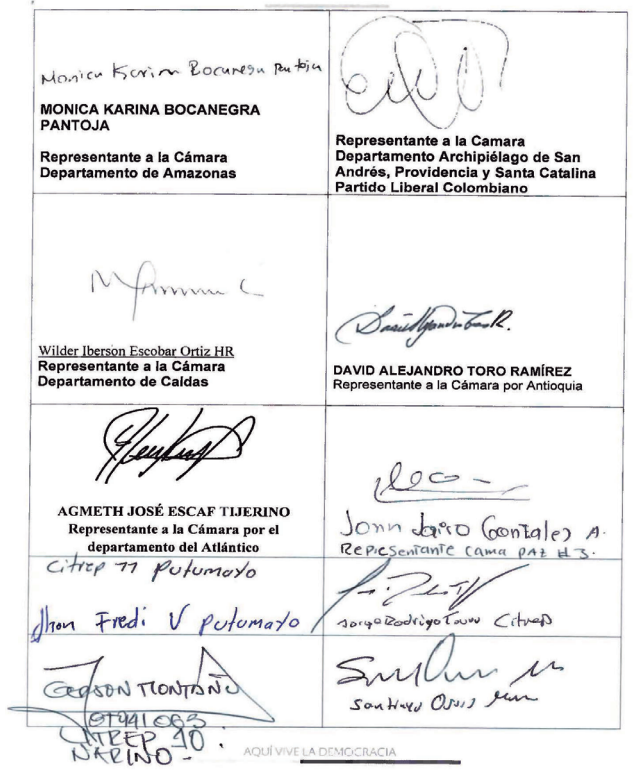 Monica Karina Bocanegra Pantoja
MONICA KARINA BOCANEGRA
PANTOJA
Representante a la Cámara
Departamento de Amazonas
Representante a la Camara
Departamento Archipiélago de San
Andrés, Providencia y Santa Catalina
Partido Liberal Colombiano
Wilder Iberson Escobar Ortiz HR
Representante a la Cámara
Departamento de Caldas
DAVID ALEJANDRO TORO RAMÍREZ
Representante a la Cámara por Antioquia
AGMETH JOSÉ ESCAF TIJERINO
Representante a la Cámara por el
departamento del Atlántico
Jhon Jairo González A.
Representante cama PAZ #3.
Citrep 11 Putumayo
Jhon Fredi V Putumayo
Jorge Rodrigo Tovar Citrep
GERSON MONTAÑO
CITREP 10.
NARIÑO -
Santiago Osorio
AQUÍ VIVE LA DEMOCRACIA